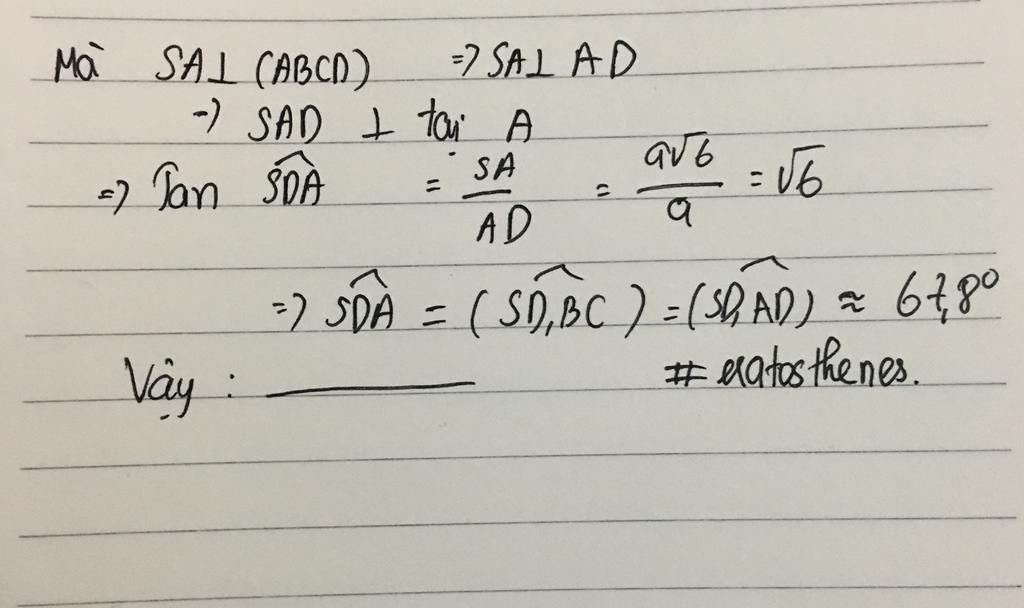 Mà SA⊥ (ABCD) => SA⊥ AD
-> SAD ⊥ tại A
=> Tan SDA = SA/AD = a√6/a = √6
=> SDA = (SD,BC) = (SD,AD) ≈ 67,8°
Vậy : # eratosthenes.